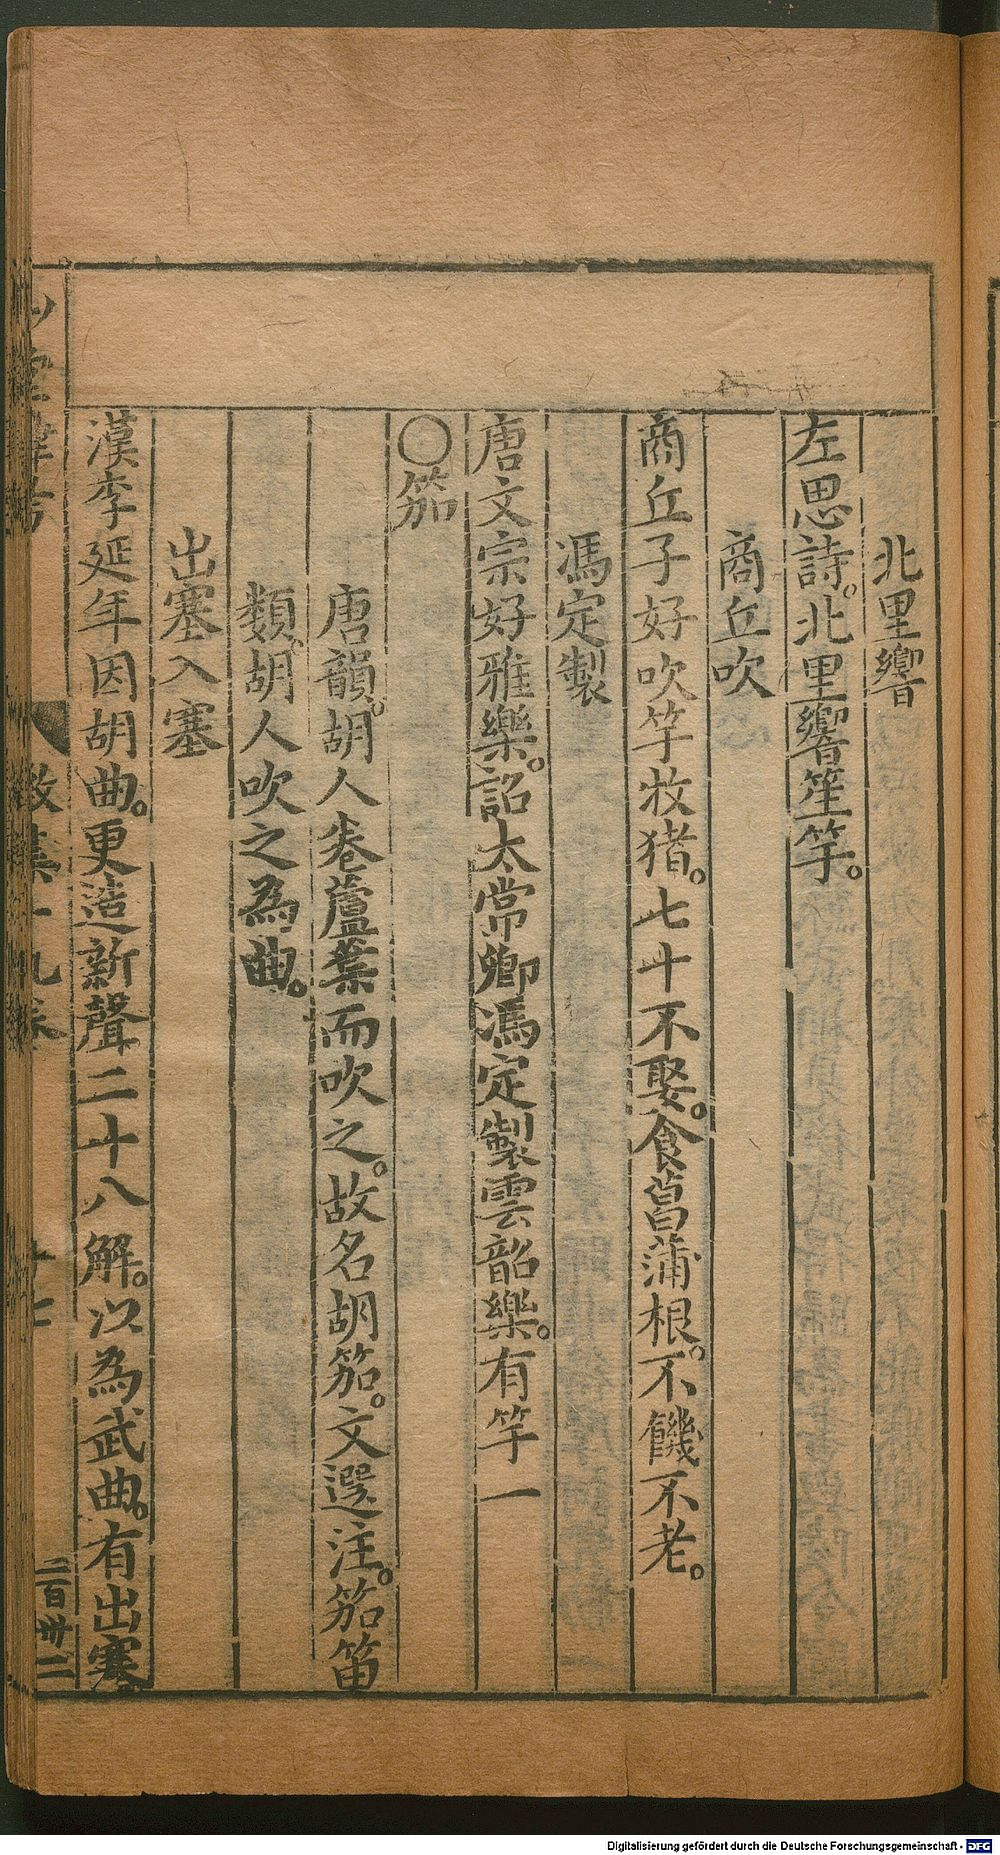 北里響
左思詩。北里響笙竽。
商丘吹
商丘子好吹竽牧猪。七十不娶。食菖蒲根。不饑不老。
馮定製
唐文宗好雅樂。詔太常卿馮定製雲韶樂。有竽一
〇笳
唐韻。胡人卷蘆葉而吹之。故名胡笳。文選注。笳笛
類。胡人吹之為曲。
出塞入塞
漢李延年因胡曲。更造新聲二十八解。以為武曲。有出塞
二百卅二
Digitalisierung gefördert durch die Deutsche Forschungsgemeinschaft - DFG